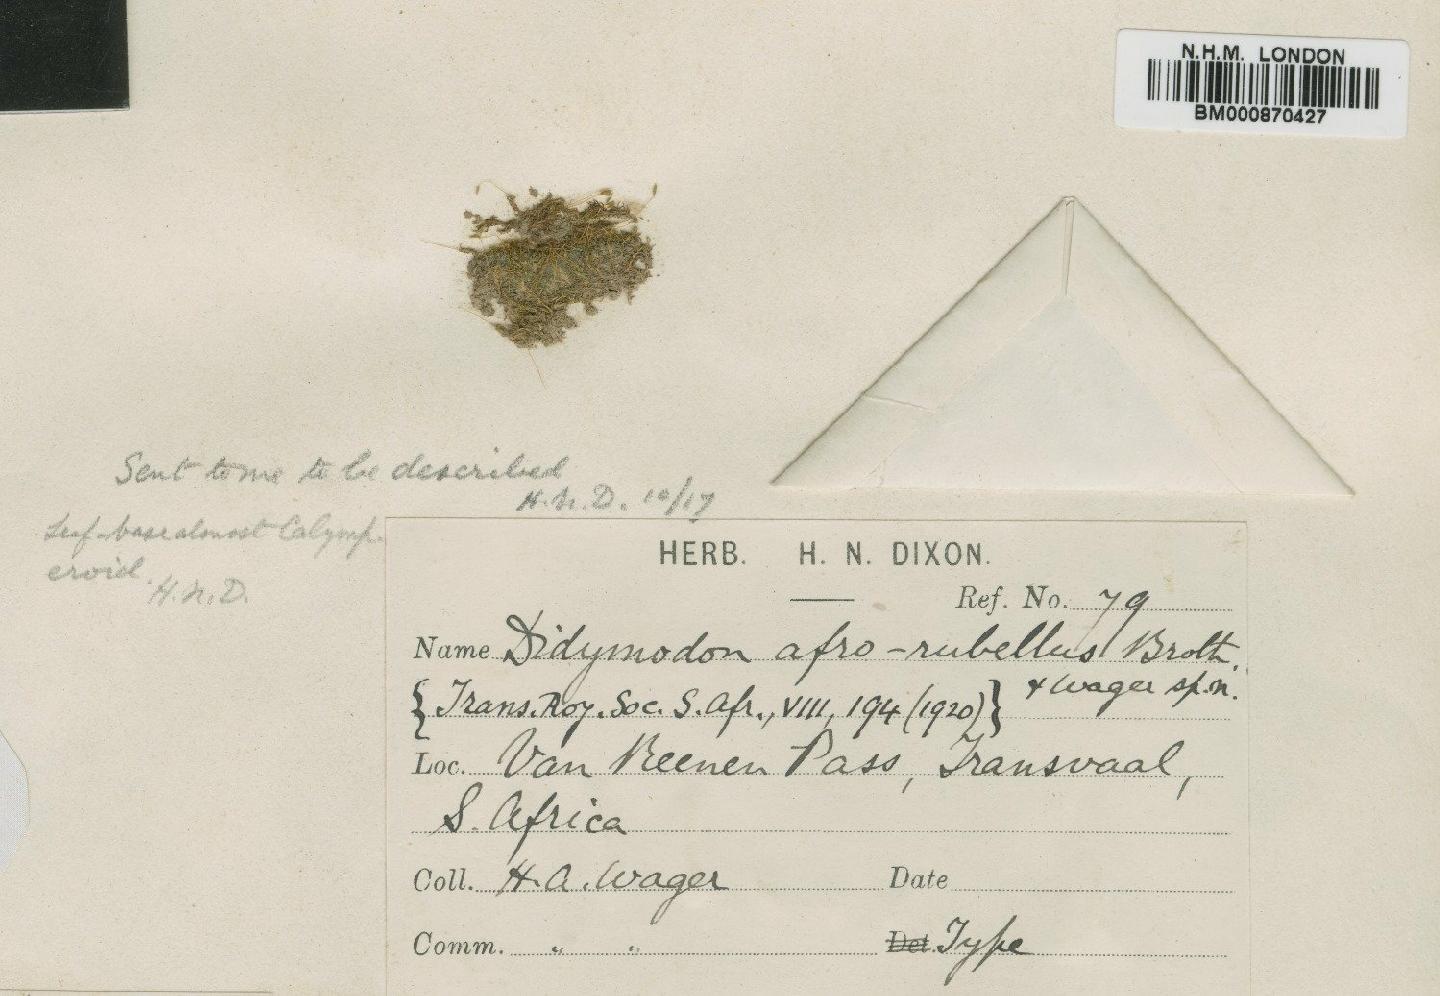 N.H.M. LONDON
BM000870427
Sent to me to be described
H.N.D. 10/17
Leaf-base almost Calymp-
eroid.
H.N.D.
HERB. H. N. DIXON.
Ref. No. 79
Name Didymodon afro-rubellus Broth.
& Wager sp.n.
{Trans. Roy. Soc. S. Afr., VIII, 194 (1920)}
Loc. Van Reenen Pass, Transvaal,
S. Africa
Coll. H. A. Wager Date
Comm. " " Det. Type